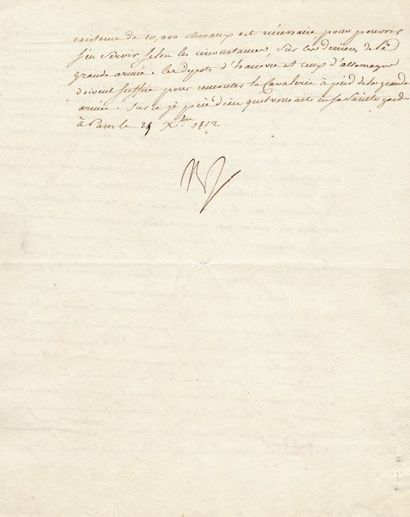 existence de 10,000 chevaux est nécessaire pour pouvoir
s'en servir selon les circonstances sur les derrieres de la
grande armée. les depots d'hanovre et ceux d'allemagne
doivent suffire pour remonter la Cavalerie à pied de la grande
armée. Sur ce je prie dieu qu'il vous ait en sa Sainte garde
à Paris le 29 Xbre 1812